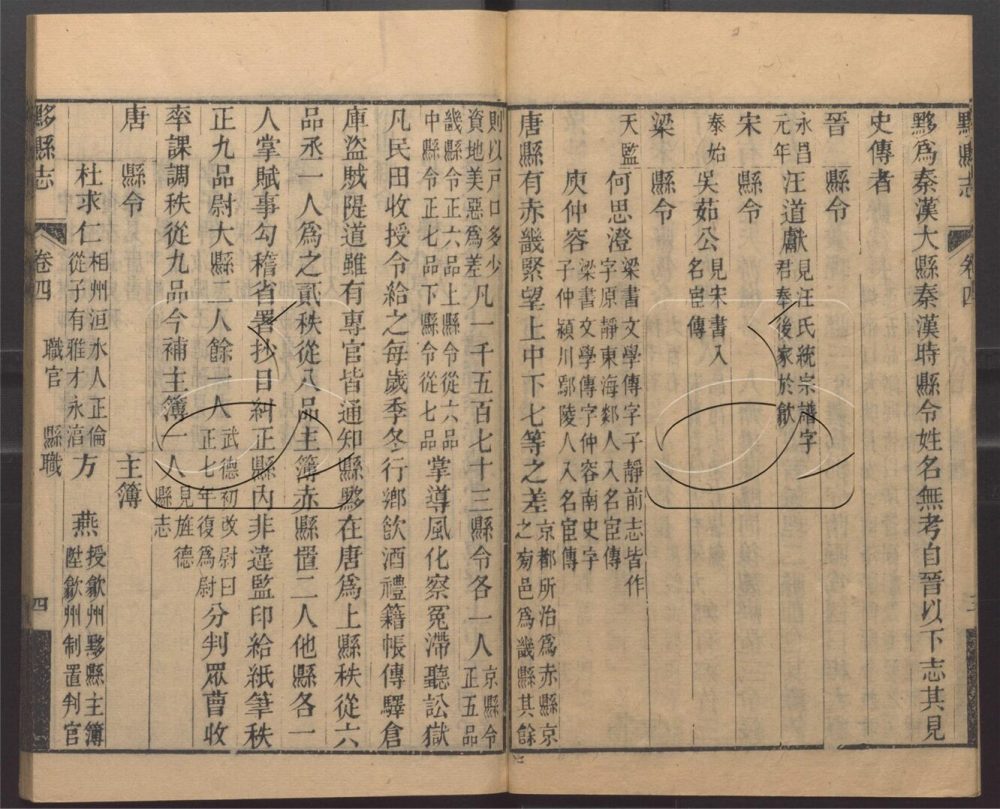 黟縣志
卷四
三
黟爲秦漢大縣秦漢時縣令姓名無考自晉以下志其見
史傳者
晉 縣令
永昌元年 汪道獻 見汪氏統宗譜字君奉後家於歙
宋 縣令
泰始 吳茹公 見宋書入名宦傳
梁 縣令
天監 何思澄 梁書文學傳字子靜前志皆作字原靜東海郯人入名宦傳
庾仲容 梁書文學傳字仲容南史字子仲潁川鄢陵人入名宦傳
唐縣有赤畿緊望上中下七等之差 京都所治爲赤縣京之旁邑爲畿縣其餘
則以戶口多少資地美惡爲差 凡一千五百七十三縣令各一人 京縣令正五品
畿縣令正六品上縣令從六品中縣令正七品下縣令從七品 掌導風化察冤滯聽訟獄
凡民田收授令給之每歲季冬行鄉飲酒禮籍帳傳驛倉
庫盜賊隄道雖有專官皆通知縣黟在唐爲上縣秩從六
品丞一人爲之貳秩從八品主簿赤縣置二人他縣各一
人掌賦事勾稽省署抄目糾正縣內非違監印給紙筆秩
正九品尉大縣二人餘一人 武德初改尉曰正七年復爲尉 分判眾曹收
率課調秩從九品今補主簿一人 見旌德縣志
唐 縣令 主簿
杜求仁 相州洹水人正倫從子有雅才永湻 方 燕 授歙州黟縣主簿陞歙州制置判官
黟縣志
卷四
職官 縣職
四